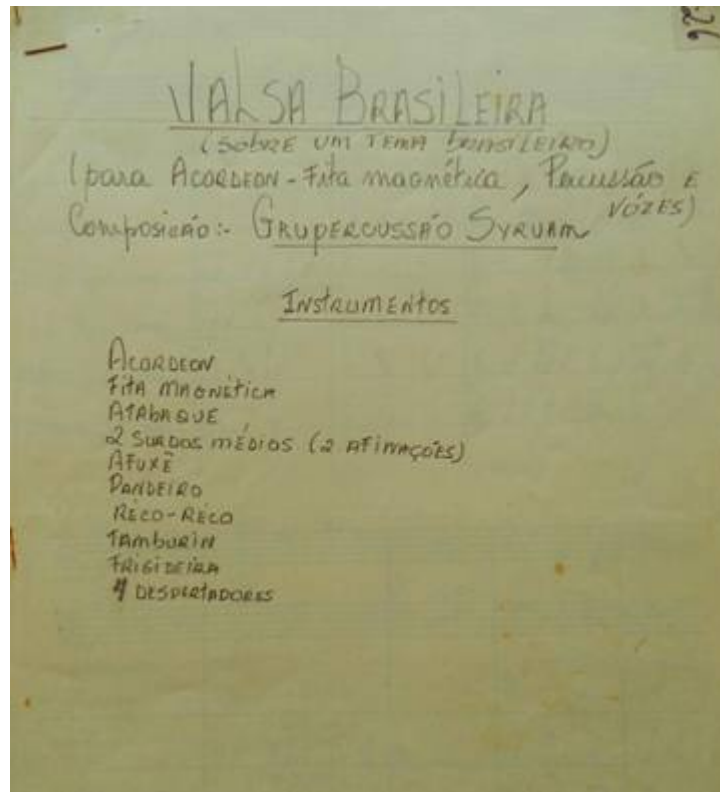 VALSA BRASILEIRA
(SOBRE UM TEMA BRASILEIRO)
(para ACORDEON - Fita magnética, Percussão E
VÓZES)
Composição:- GRUPERCUSSÃO SYRUAM
INSTRUMENTOS
ACORDEON
FITA MAGNÉTICA
ATABAQUE
2 SURDOS MÉDIOS (2 AFINAÇÕES)
AFUXÊ
PANDEIRO
RÉCO-RÉCO
TAMBURIN
FRIGIDEIRA
4 DESPERTADORES